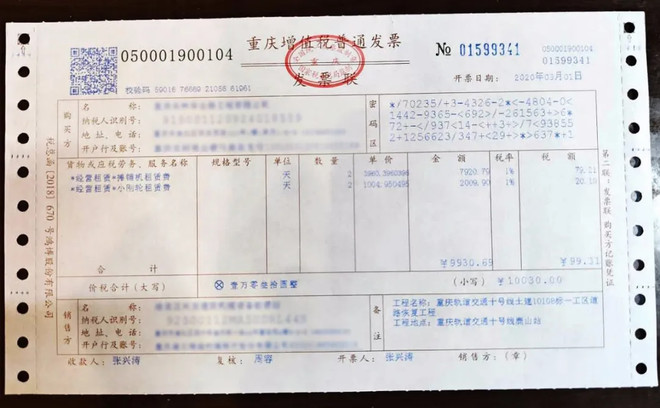 050001900104
重庆增值税普通发票
发票联
№ 01599341
050001900104
01599341
校验码 59016 76669 21056 61961
开票日期: 2020年03月01日
购买方
名称:
纳税人识别号:
地址、电话:
开户行及账号:
密码区
*/70235/+3-4326-2*<-4804-0<
1442-9365-<692>/-261563+>6
72+-</937<14-<++3+/7<93855
2+1256623/347+<29+>*637*+1
货物或应税劳务、服务名称 规格型号 单位 数量 单价 金额 税率 税额
*经营租赁*摊铺机租赁费 天 2 3960.3960396 7920.79 1% 79.21
*经营租赁*小刚轮租赁费 天 2 1004.950495 2009.90 1% 20.10
合计 ¥9930.69 ¥99.31
价税合计(大写) ⊗壹万零叁拾圆整 (小写) ¥10030.00
销售方
名称:
纳税人识别号:
地址、电话:
开户行及账号:
备注
工程名称: 重庆轨道交通十号线土建10158标一工区道
路恢复工程
工程地点: 重庆轨道交通十号线
收款人: 张兴涛 复核: 周容 开票人: 张兴涛 销售方:(章)
税总函〔2018〕670号鸿博股份有限公司
第二联:发票联 购买方记账凭证